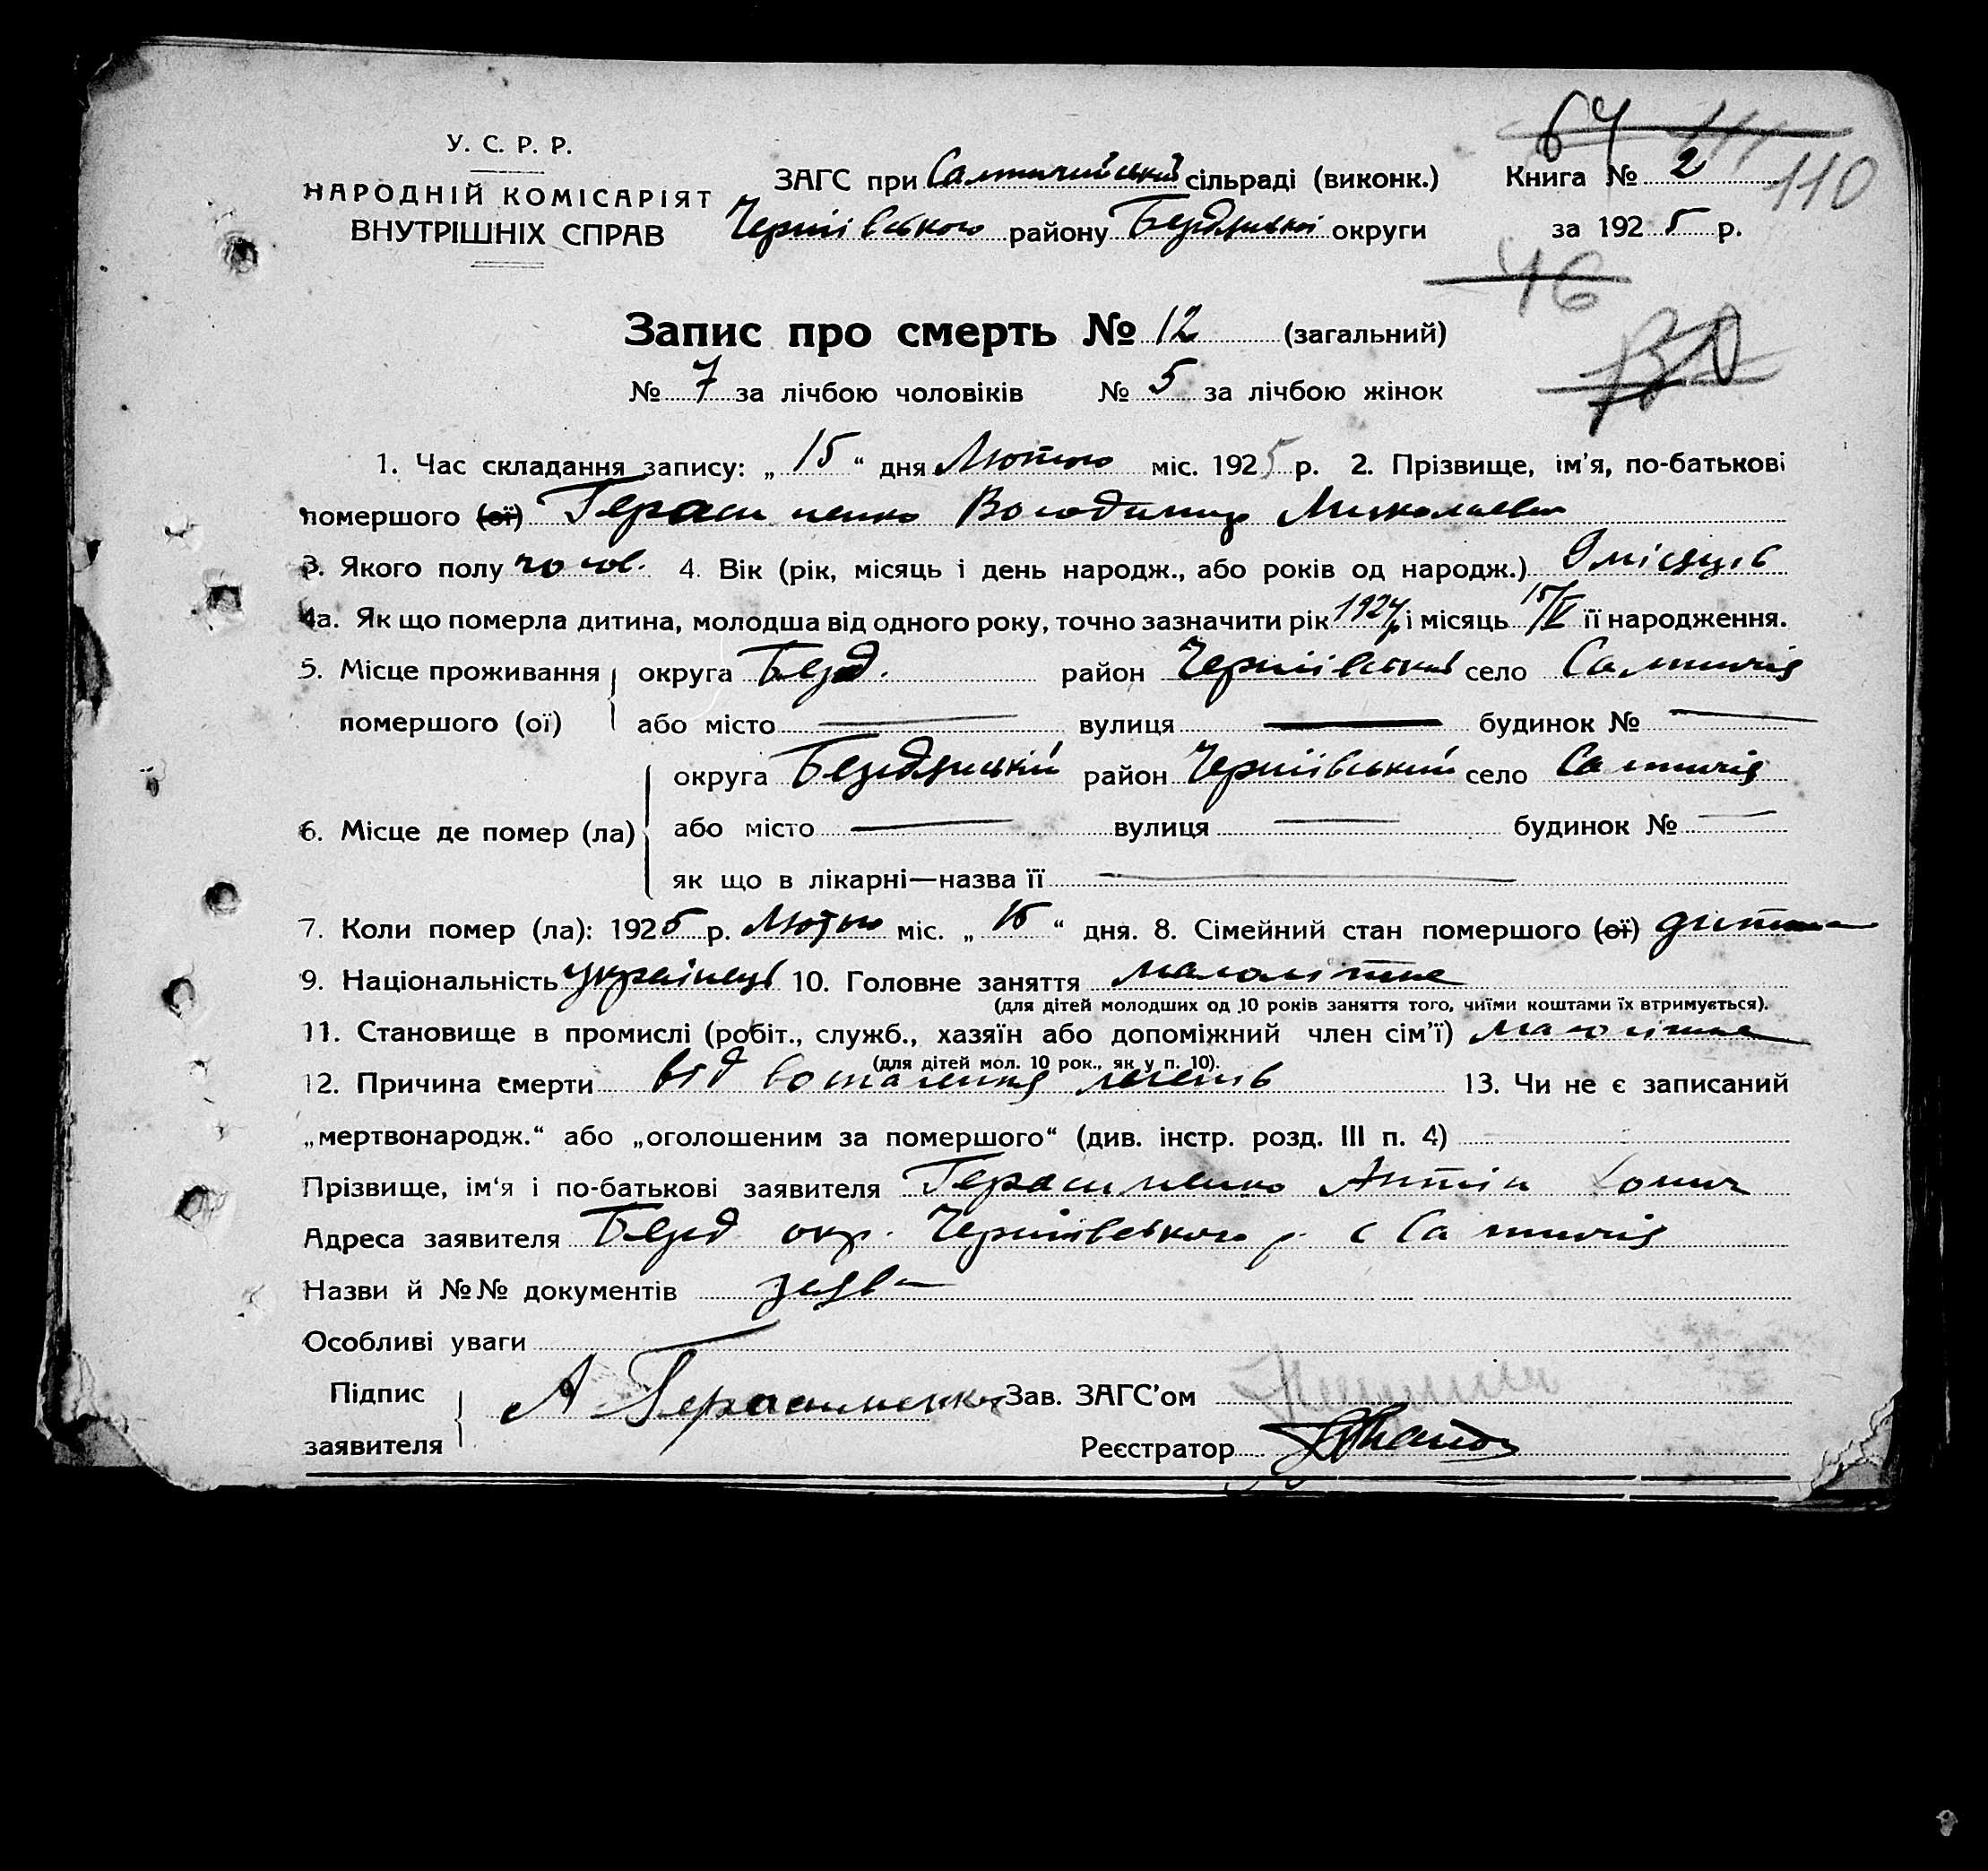 64 111
110
У. С. Р. Р.
НАРОДНІЙ КОМІСАРІЯТ
ВНУТРІШНІХ СПРАВ
ЗАГС при Салтичийській сільраді (виконк.) Книга № 2
Чернігівського району Бердянської округи за 1925 р.
46
Запис про смерть № 12 (загальний)
№ 7 за лічбою чоловіків № 5 за лічбою жінок
1. Час складання запису: „ 15 “ дня Лютого міс. 1925 р. 2. Прізвище, ім'я, по-батькові
помершого (ої) Герасименко Володимир Миколаевич
3. Якого полу чолов. 4. Вік (рік, місяць і день народж., або років од народж.) 9 місяців
4а. Як що померла дитина, молодша від одного року, точно зазначити рік 1924 р і місяць 15/V її народження.
5. Місце проживання округа Берд. район Чернігівський село Салтичія
помершого (ої) або місто вулиця будинок №
округа Бердянській район Чернігівський село Салтичія
6. Місце де помер (ла) або місто вулиця будинок №
як що в лікарні—назва її
7. Коли помер (ла): 1925 р. Лютого міс. „ 15 “ дня. 8. Сімейний стан помершого (ої) дитина
9. Національність українець 10. Головне заняття малолітнє
(для дітей молодших од 10 років заняття того, чиїми коштами їх втримується).
11. Становище в промислі (робіт., служб., хазяїн або допоміжний член сім'ї) малолітнє
(для дітей мол. 10 рок., як у п. 10).
12. Причина смерти від воспалення легенів 13. Чи не є записаний
„мертвонародж.“ або „оголошеним за помершого“ (див. інстр. розд. III п. 4)
Прізвище, ім'я і по-батькові заявителя Герасименко Антін
Адреса заявителя Берд окр. Чернігівського р. с Салтичія
Назви й №№ документів заява
Особливі уваги
Підпис
заявителя А Герасименко Зав. ЗАГС'ом
Реєстратор